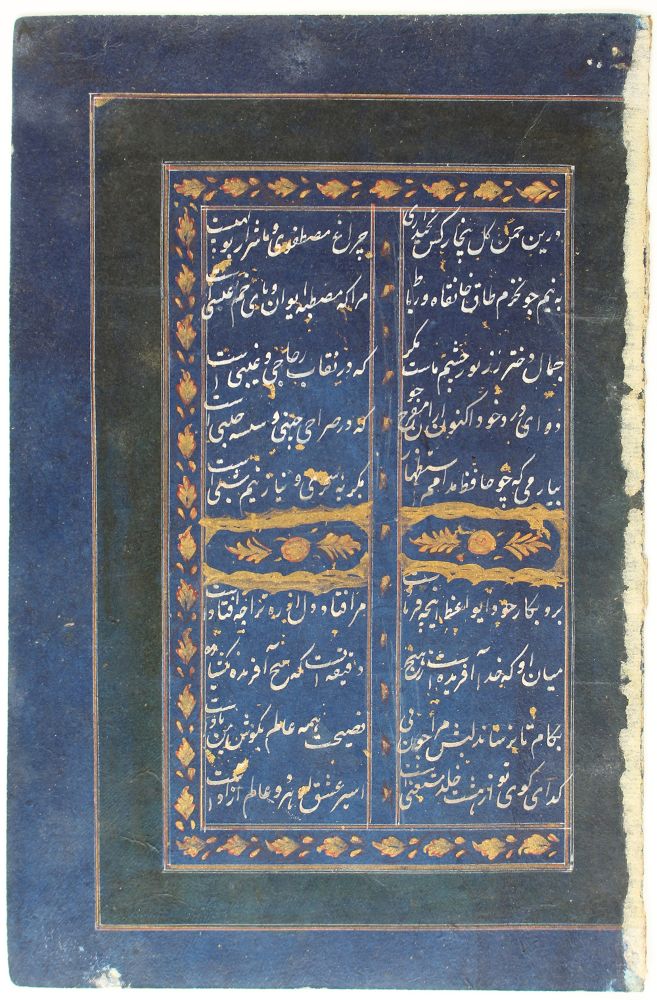 درین چمن گل بیخار کس نچید آری چراغ مصطفوی با شرار بولهبیست
به نیم جو نخرم طاق خانقاه و رباط مرا که مصطبه ایوان و پای خم طنبیست
جمال دختر رز نور چشم ماست مکر که در نقاب زجاجی و عنبی است
دوای درد خود اکنون از آن مفرح جو که در صراحی چینی و شیشه حلبی است
بیار می که چو حافظ مدامم استظهار بکریه سحری و نیاز نیم شبیست
برو بکار خود ای واعظ اینچه فریادست مرا فتاد دل از ره ترا چه افتادست
میان او که خدا آفریده است از هیچ دقیقه ایست که هیچ آفریده نکشاده
بکام تا نرساند لبش مرا چون نی نصیحت همه عالم بکوش من بادست
کدای کوی تو از هشت خلد مستغنیست اسیر عشق تو از هر دو عالم آزاد است